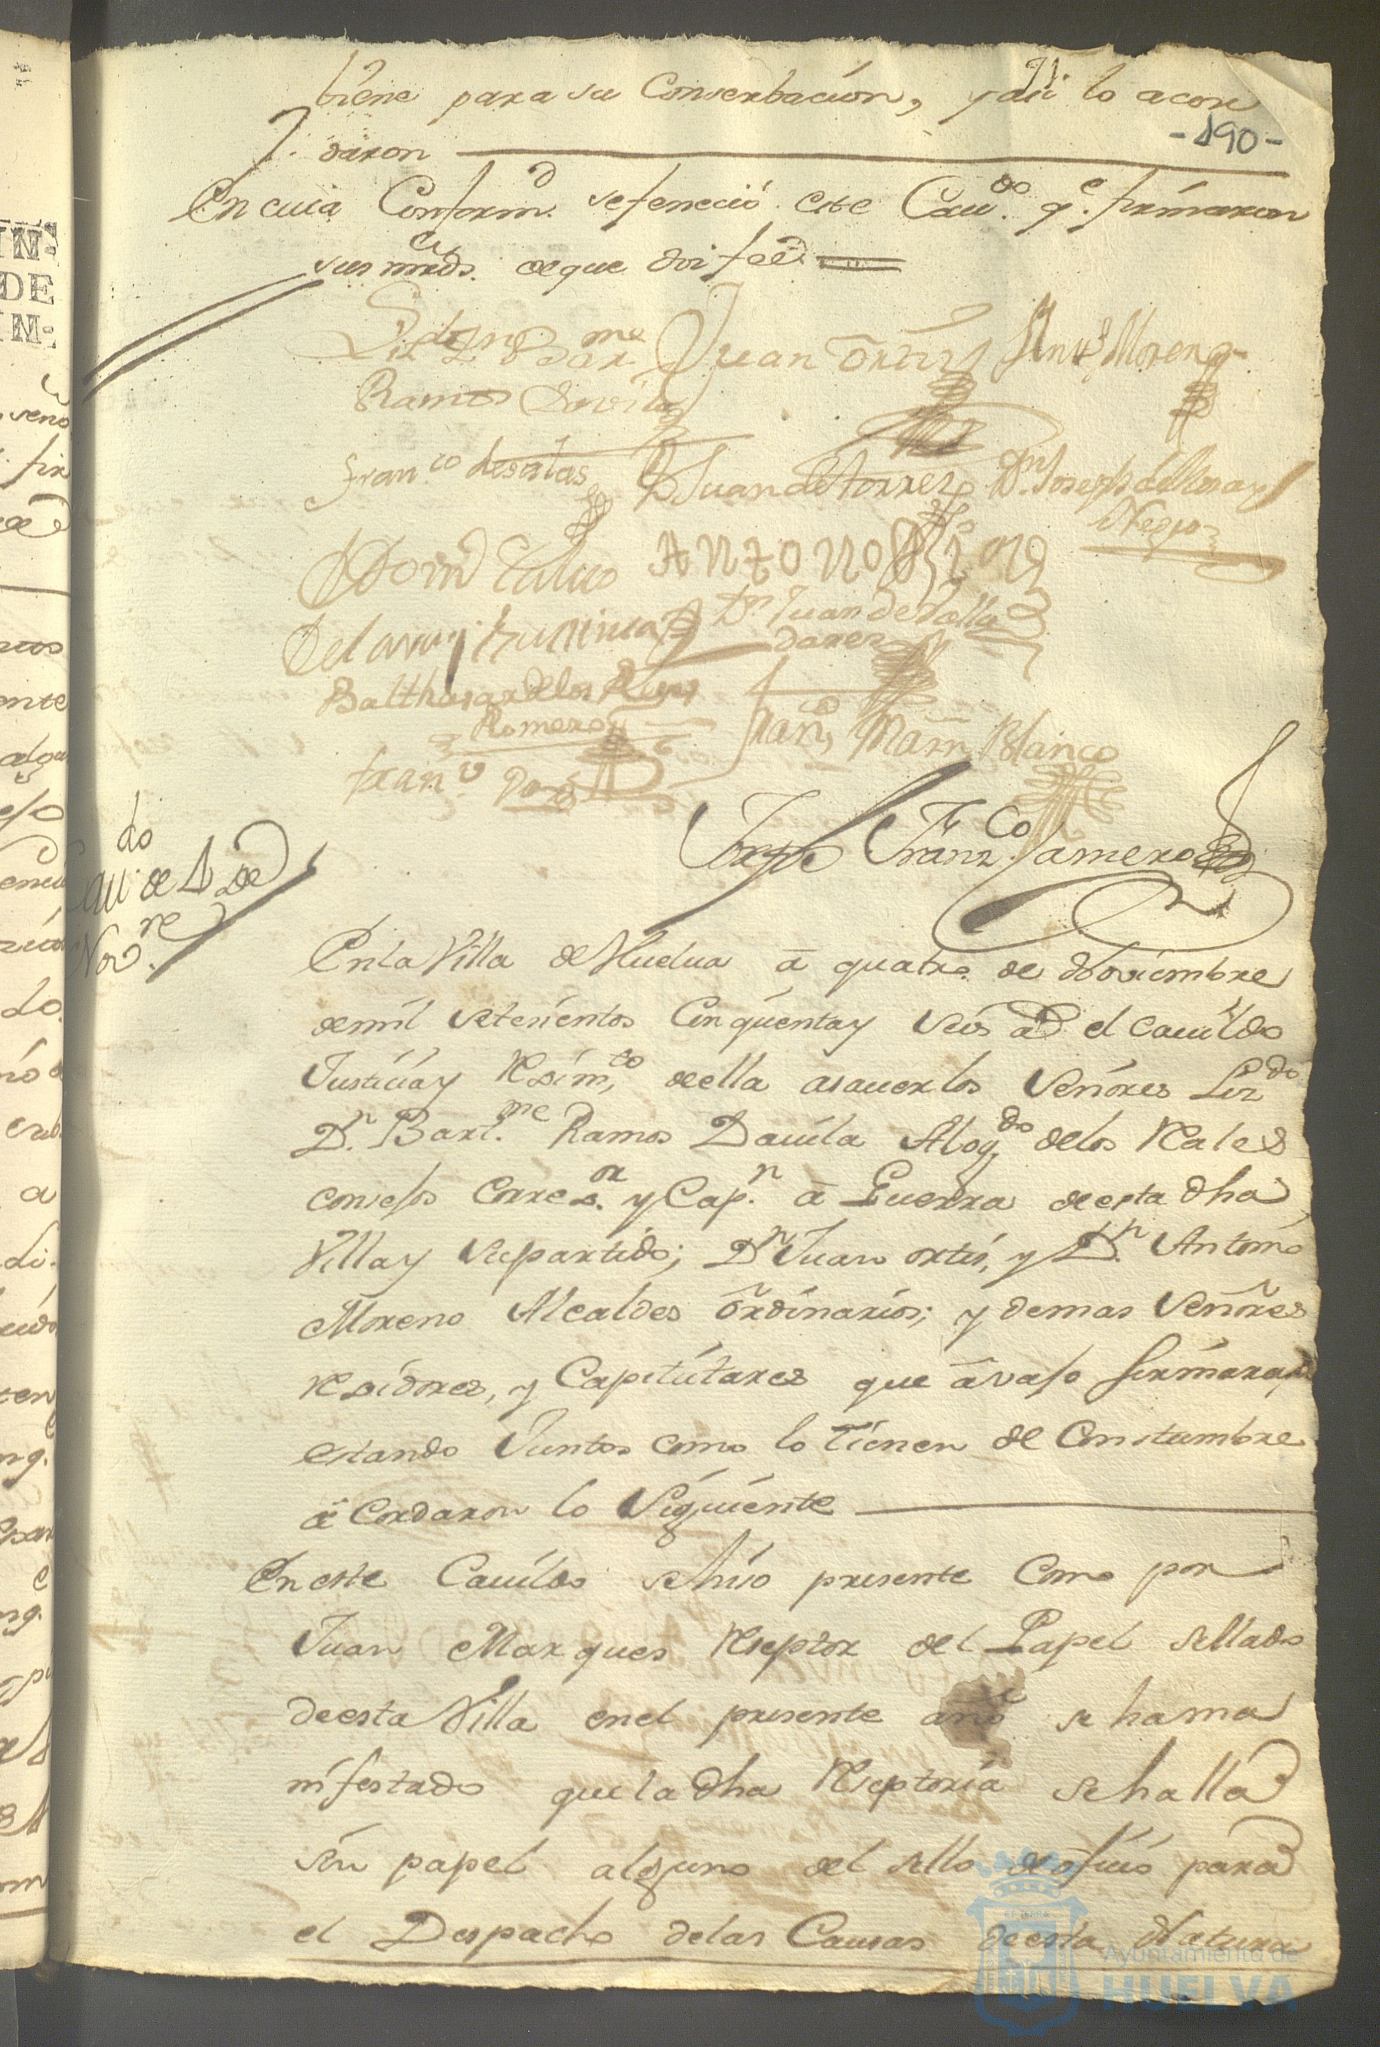 71.
biene para su Conserbacion, y asi lo acor
-190-
daron
En cuia Conform.d se feneció este Cau.do q.e firmaron
sus mrds. de que doi fee
Liz.do D.n Bar.me Juan Ortiz Ant.o Moreno
Ramos Davila
Fran.co de D. Juan de Torres D.n Joseph de
Negro
D Dom.o
D.n Juan de Valla
dares
Balthasar de los Reyes
Romero
Fran.co Mar.n Blanco
Fran.co
Jorge Fran.co Jamero
Cau.do de 4 de
Nov.re
En la Villa de Huelua á quatro de Noviembre
de mil setesientos Cinquenta y seis as. el cauildo
Justicia y Rexim.to de ella asauer los Señores Liz.do
D.n Bart.me Ramos Dauila Abog.do de los R.ales
consejos Corre.or y Cap.n á Guerra de esta dha
Villa y su partido; D.n Juan ortis, y D.n Antonio
Moreno Alcaldes ordinarios; y demas Señores
Rexidores, y Capitulares que avajo firmaran
estando Juntos como lo tienen de Constumbre
a Cordaron lo siguiente
En este Cauildo se hiso presente Como por
Juan Marques Reseptor del Papel sellado
de esta Villa en el presente año se ha ma
nifestado que la dha Reseptoria se halla
sin papel alguno del sello de oficio para
el Despacho de las Causas de esta Natura
Ayuntamiento de
HUELVA